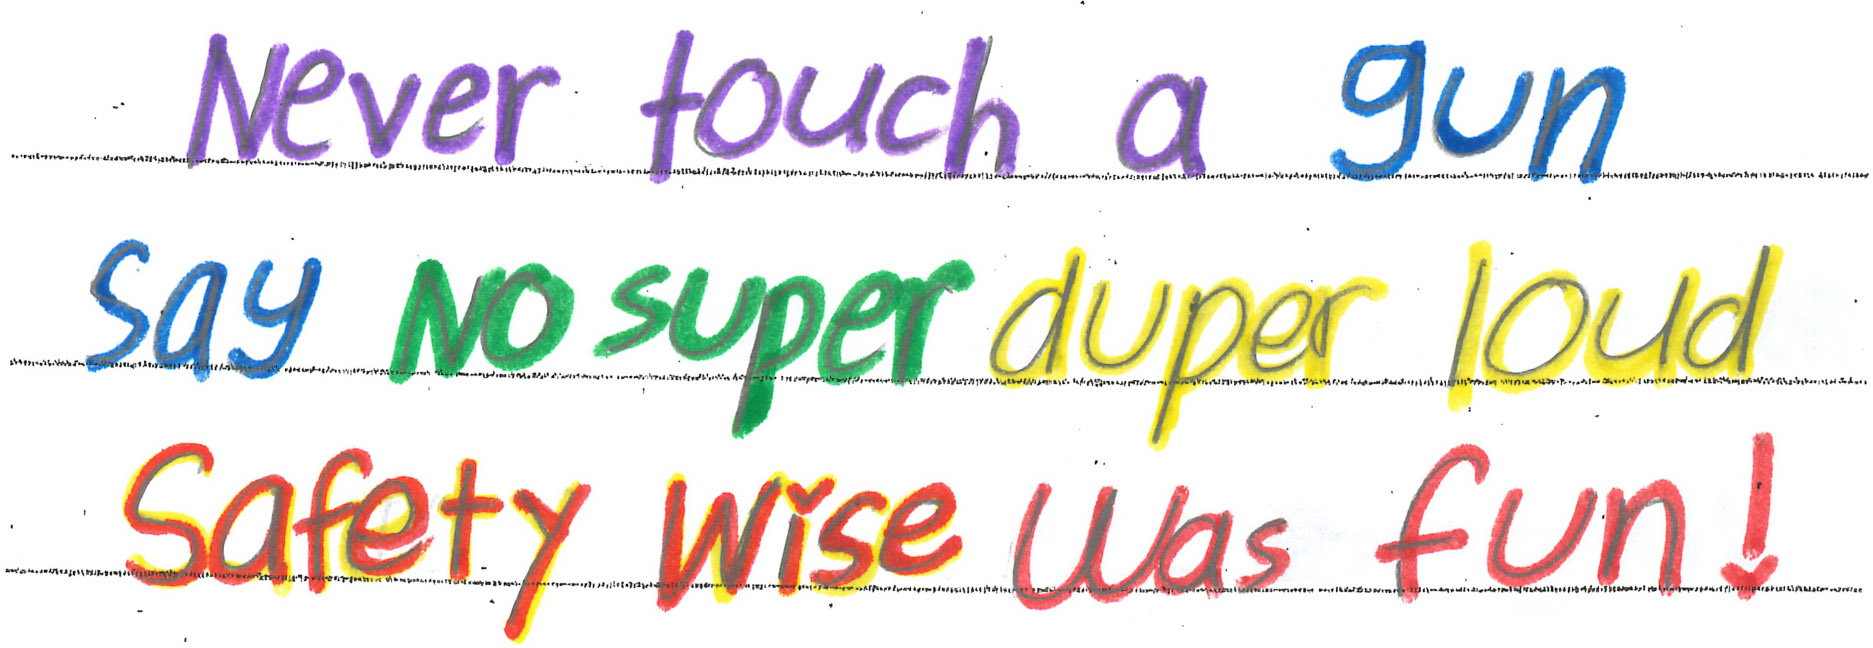 Never touch a gun
Say No super duper loud
Safety Wise Was fun!